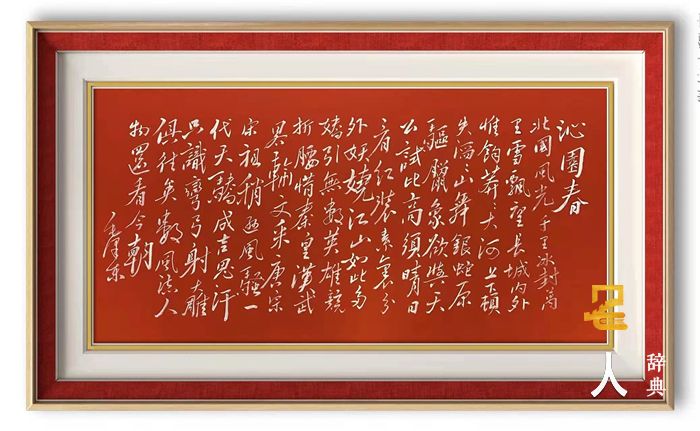 沁園春
北國風光千里冰封萬
里雪飄望長城內外
惟餘莽々大河上下頓
失滔々山舞銀蛇原
驅臘象欲與天
公試比高須晴日
看紅裝素裹分
外妖嬈江山如此多
嬌引無數英雄競
折腰惜秦皇漢武
畧輸文采唐宗
宋祖稍遜風騷一
代天驕成吉思汗
只識彎弓射大雕
俱往矣數風流人
物還看今朝
毛澤東
名人
辞典